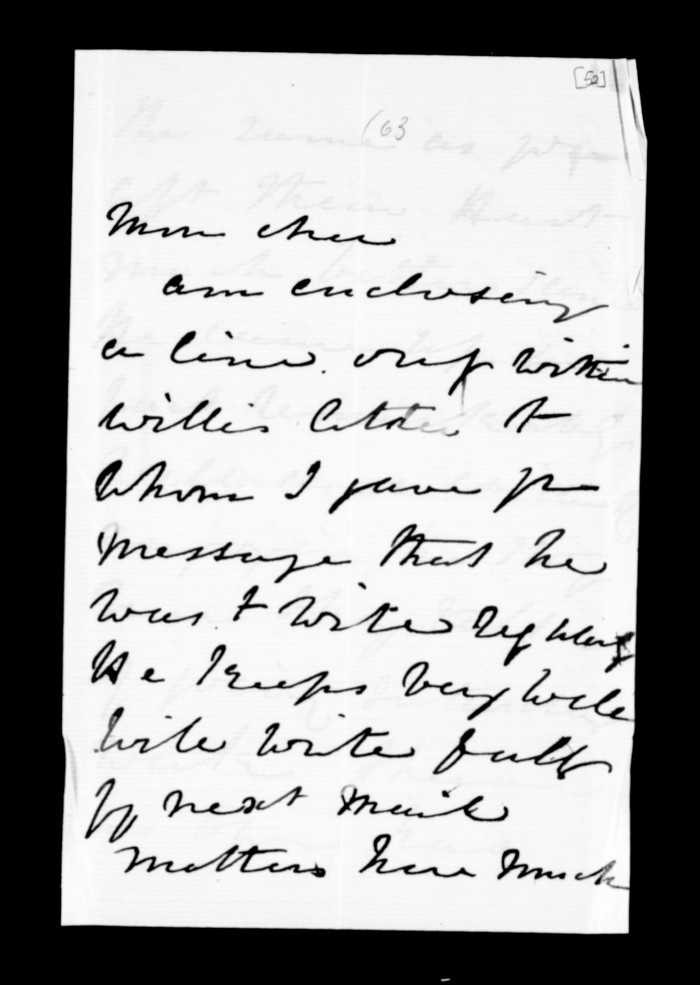 [50]
(63
Mon cher
am enclosing
a line only within
Willis letter to
whom I gave yr
message that he
was to write regularly
He keeps very well
will write fully
by next mail
Matters here much